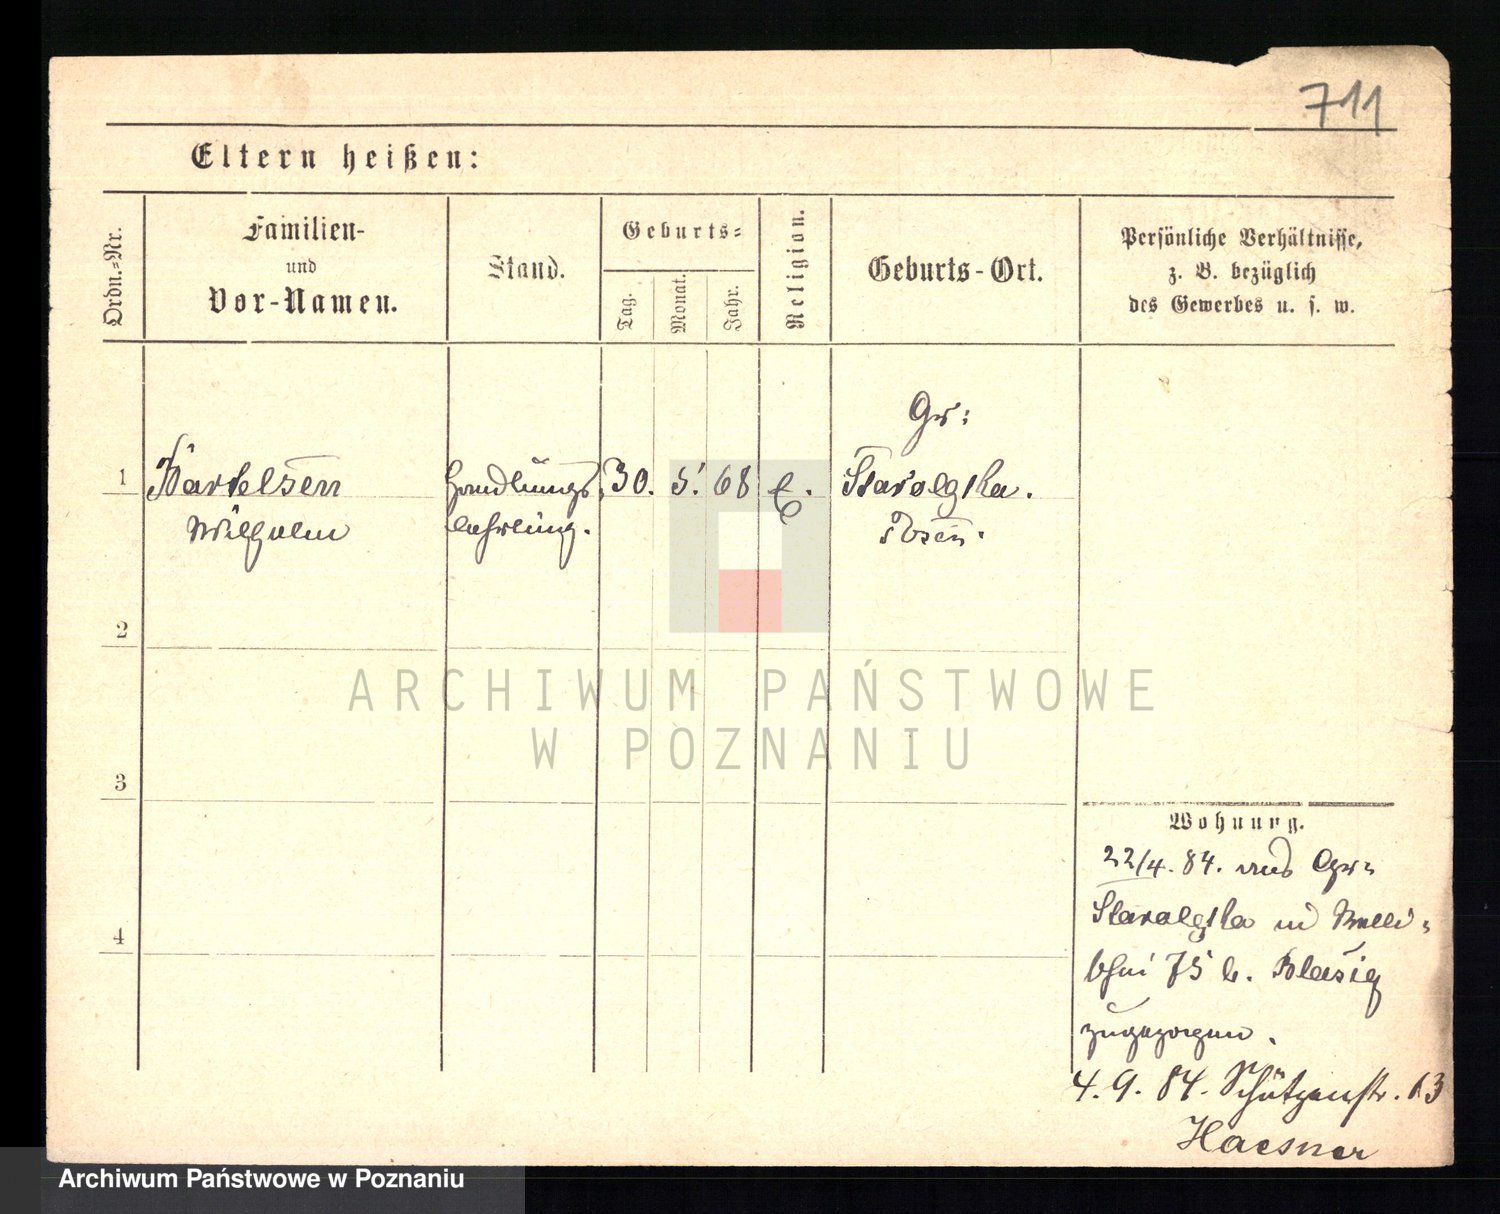 711
Eltern heißen:
Ordn.-Nr.
Familien-
und
Vor-Namen.
Stand.
Geburts-
Tag.
Monat.
Jahr.
Religion.
Geburts-Ort.
Persönliche Verhältnisse,
z. B. bezüglich
des Gewerbes u. s. w.
1
Bartelsen
Wilhelm
Handlungs
lehrling.
30.
5.
68
E.
Gr:
Starolenka.
Posen.
2
3
4
Wohnung.
22/4. 84. aus Gr=
Starolenka
75 b.
zugezogen.
4. 9. 84. Schützenstr. 13
Haesner
ARCHIWUM PAŃSTWOWE
W POZNANIU
Archiwum Państwowe w Poznaniu